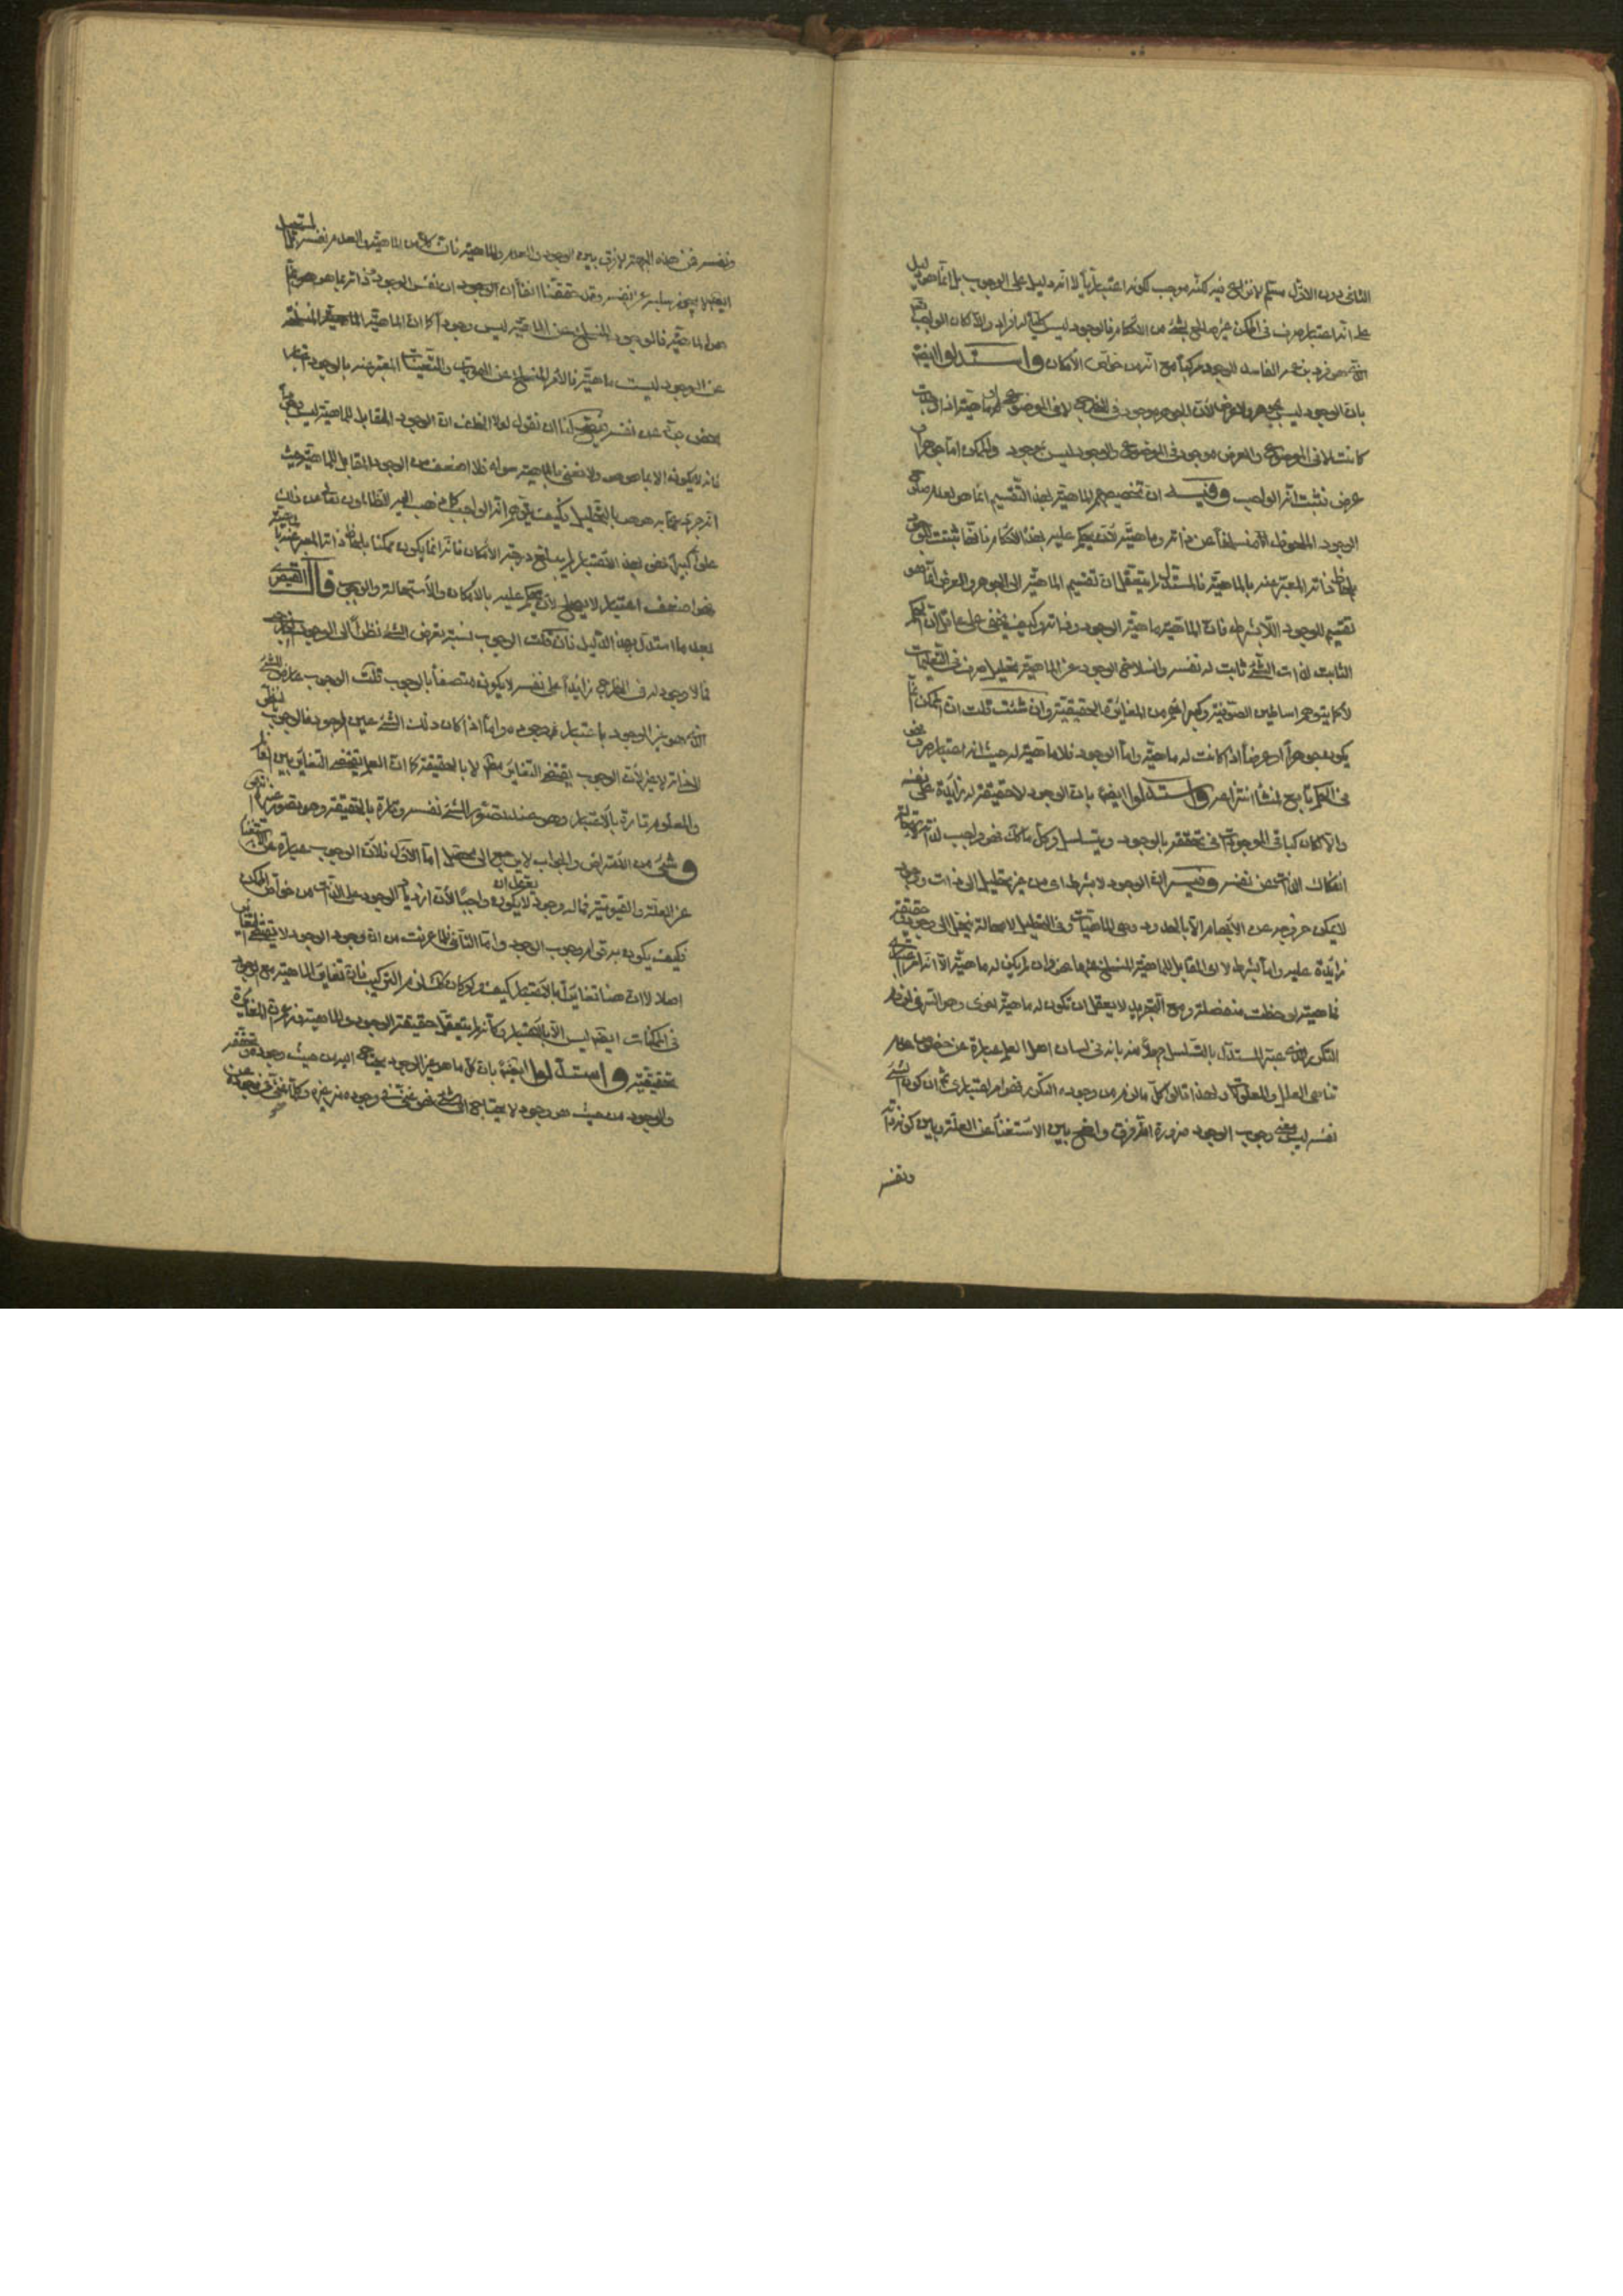 الثانى دون الاوّل ستم لانزاع فيه لكنّه موجب لكونه اعتباريّاً لا انه دليل على الوجوب بل انّما هو دليل
على انه اعتبار صرف فى الممكن غير صالح لشئ من الاحكام فالوجود ليس كليّاً له افراد والّا لكان الواجب
هو فرد بزعمهم الفاسد الوجود مركباً مع انه من خواص الامكان واستدلوا ايضاً
بان الوجود ليس بجوهر ولا عرض لانّ الجوهر موجود فى الخارج لا فى الموضوع او ماهيّة اذا وجدت
كانت لا فى الموضوع والعرض موجود فى الموضوع والوجود ليس بموجود والممكن امّا جوهر او
عرض فثبت انّه الواجب وفيه ان تخصيصهم الماهيّة بهذا التقسيم انّما هو لعدم صلوح
الوجود الملحوظ منسلخاً عن ذاته وماهيّته لان يحكم عليه بهذه الاحكام فانّها ثبتت للوجود
بلحاظ ذاته المعبّر عنه بالماهيّة فالمستدل لم يتعقّل ان تقسيم الماهيّة الى الجوهر والعرض انّما هو
تقسيم للوجود اللابشرط فانّ الماهيّة ماهيّة الوجود وذاته وكيف يخفى على عاقل ان الحكم
الثابت لذات الشّئ ثابت له نفسه وانسلاخ الوجود عن الماهيّة بتحليل صرف فى التعليمات
لا كما يتوهم اساطين الصوفيّة وكبرائهم من المغايرة الحقيقيّة وان شئت قلت انّ الممكن انّما
يكون جوهراً او عرضاً اذا كانت له ماهيّة وامّا الوجود فلا ماهيّة له حيث انه اعتبار صرف محض
فى الحكم تابع لمنشأ انتزاعه واستدلوا ايضاً بان الوجود لا حقيقة له زائدة على نفسه
والّا لكان كباقى الموجودات فى تحققه بالوجود ويتسلسل وكل ما كان كذلك فهو واجب لذاته لاستحالة
انفكاك الذات عن نفسه وفيه انّ الوجود لا بشرط اى من غير تحليل الى ذات ووجود
لا يمكن خروجه عن الابهام الّا بالحدود وهى الماهيّات وفى التحليل لا محالة ينحل الى وجود وحقيقة
زائدة عليه وامّا بشرط لا اى المقابل للماهيّة المنسلخ عنها فهو وان لم يكن له ماهيّة الّا انه امر اعتبارى
فماهيّته لوحظت منفصلة ومع التجريد لا يعقل ان تكون له ماهيّة اخرى وهو السرّ فى لزوم
التكرر الذى عبّر المستدل بالتسلسل جهلاً منه بانه فى لسان اهل العلم عبارة عن خصوص عدم
تناهى العلل والمعلولات ولهذا قالوا كلّ ما لزم من وجوده التكرر فهو امر اعتبارى ثم ان كون الشئ
نفسه ليس معنى وجوب الوجود ضرورة انّ الفرق واضح بين الاستغناء عن العلة وبين كونه ذاته
ونفسه
ونفسه فمن هذه الجهة لا فرق بين الوجود والعدم والماهيّة فانّ كلّا من الماهيّة والعدم نفسه كما يستحيل
ايضاً لا يجوز سلبه عن نفسه وقد حققنا انفاً ان الوجود ان نفس الوجود ذاته بما هو هو انّما
هو الماهيّة فالوجود المنسلخ عن الماهيّة ليس وجوداً كما ان الماهيّة المنسلخة
عن الوجود ليست ماهيّة فالأمر المنسلخ عن الهويات والتعيّنات المعبّر عنه بالوجود
محض عبّ عن نفسه فيصحّ لنا ان نقول لولا اللطف انّ الوجود المقابل للماهيّة ليس وجوداً
فانه لا يكون الا بما هو هو ولا نعنى بالماهيّة سواه فلا اضعف من الوجود المقابل للماهيّة حيث
انه جرى عمّا به هو هو بالتحليل فكيف يتوهم انه الواجب كما ذهب اليه الظالمون تعالى عن ذلك
علوّاً كبيراً فهو بهذا الاعتبار لم يبلغ درجة الامكان فانّه انما يكون ممكناً بلحاظ ذاته المعبر عنه بالماهيّة
فهو اضعف اعتبار لا يصلح لان يحكم عليه بالامكان والاستحالة والوجوب قال القيصرى
بعد ما استدل بهذا الدليل فان قلت الوجوب نسبة تعرض الشئ نظراً الى الوجود الخارجى
فما لا وجود له فى الخارج زائداً على نفسه لا يكون متصفاً بالوجوب قلت الوجوب عارض الشئ
الذى هو غير الوجود باعتبار وجوده وامّا اذا كان ذلك الشئ عين الوجود فالوجوب بالنظر
الى ذاته لا غير لانّ الوجوب يقتضى التغاير مطلقاً لا بالحقيقة كما انّ العلم يقتضى التغاير بين العالم
والمعلوم تارة بالاعتبار وهو عند تصوّر الشئ نفسه وتارة بالحقيقة وهو تصوّره غيره انتهى
وشئ من الاعتراض والجواب لا يرجع الى محصّل امّا الاوّل فلانّ الوجوب عبارة عن الاستغناء
عن العلّة والقيوميّة فما له وجود لا يعقل ان يكون واجباً لانّ ازدياد الوجود على الذات من خواص الممكن
فكيف يكون به قوام وجوب الوجود وامّا الثانى فلما عرفت من انّ وجود الوجود لا يقتضى التغاير
اصلا لا انّ هنا تغايراً بالاعتبار كيف ولو كان لكان لزم التركيب فانّ تغاير الماهيّة مع الوجود
فى الممكنات ايضاً ليس الّا بالاعتبار وكانّه لم يتعقّل حقيقة الوجود والماهيّة فزعم ان المغايرة
حقيقيّة واستدلوا ايضاً بان كلّ ما هو غير الوجود يحتاج اليه من حيث وجوده وتحققه
والوجود من حيث هو وجود لا يحتاج الى شئ فهو غنىّ فى وجوده عن غيره وكلّ ما هو غنىّ فى وجوده عن